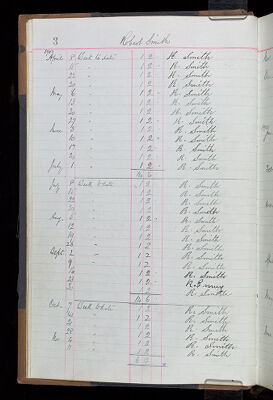 3 Robert Smith
April 8 Week to date 12 R. Smith
15 " 12 R. Smith
22 " 12 R. Smith
29 " 12 R. Smith
May 6 " 12 R. Smith
13 " 12 R. Smith
20 " 12 R. Smith
27 " 12 R. Smith
June 3 " 12 R. Smith
10 " 12 R. Smith
17 " 12 R. Smith
" 12 R. Smith
July 1 " 12 R. Smith
July 8 Week to date 12 R. Smith
" 12 R. Smith
" 12 R. Smith
" 12 R. Smith
Aug 5 " 12 R. Smith
12 " 12 R. Smith
19 " 12 R. Smith
26 " 12 R. Smith
Sept 2 " 12 R. Smith
9 " 12 R. Smith
16 " 12 R. Smith
23 " 12
" 12 R. Smith
Oct 7 Week to date 12 R. Smith
14 " 12 R. Smith
" 12 R. Smith
28 " 12 R. Smith
Nov 4 " 12 R. Smith
12 R. Smith
12 R. Smith